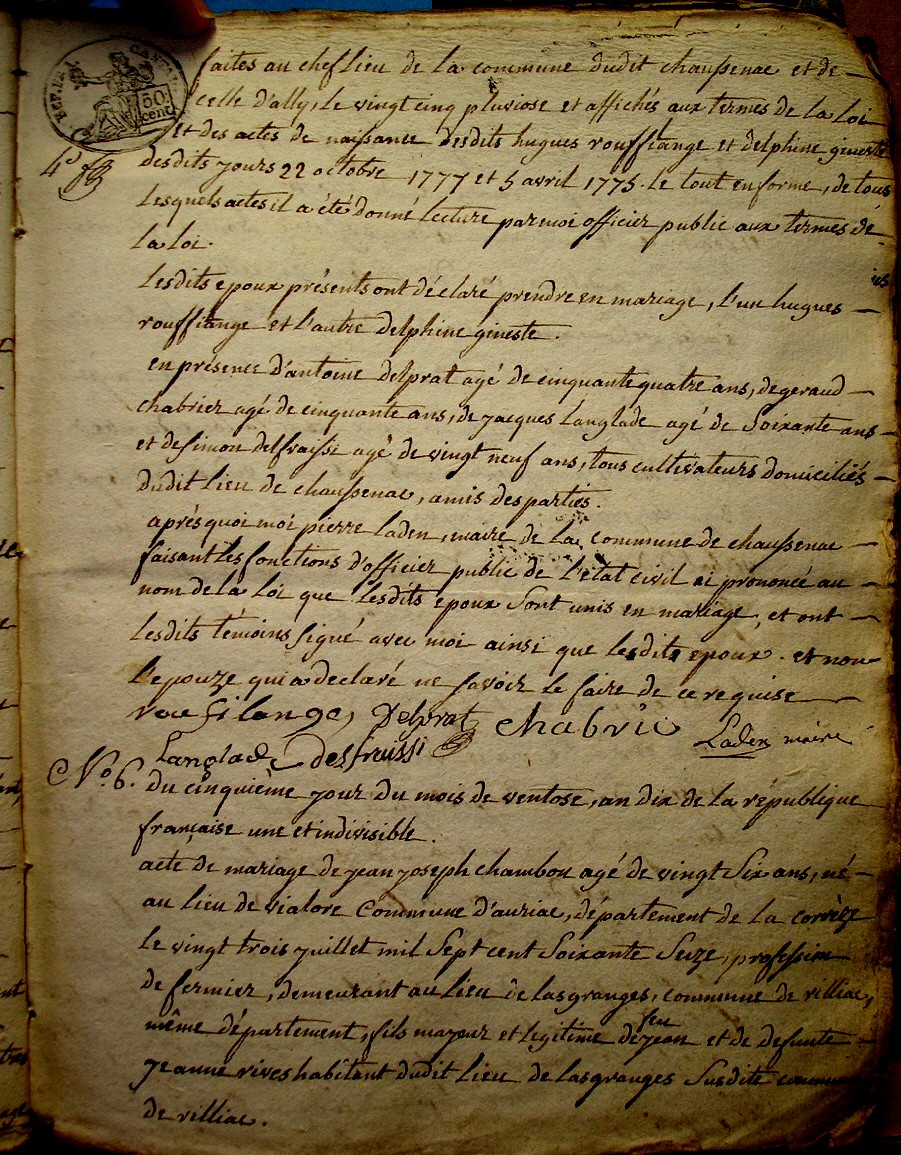 faites au chef lieu de la commune dudit chaussenac et de
celle d'ally, le vingt cinq pluviose et affichés aux termes de la loi
et des actes de naissance desdits hugues rouffiange et delphine gineste
50 cent
4e
desdits jours 22 octobre 1777 et 5 avril 1775. le tout en forme, de tous
lesquels actes il a été donné lecture par moi officier public aux termes de
la loi.
lesdits epoux présents ont déclaré prendre en mariage, l'un hugues
rouffiange et l'autre delphine gineste.
en présence d'antoine delprat agé de cinquante quatre ans, de geraud
chabrier agé de cinquante ans, de jacques Langlade agé de Soixante ans
et de simon delfraissi agé de vingt neuf ans, tous cultivateurs domiciliés
dudit Lieu de chaussenac, amis des parties.
après quoi moi pierre Laden, maire de la commune de chaussenac
faisant les fonctions d'officier public de l'état civil ai prononcé au
nom de la Loi que lesdits epoux Sont unis en mariage, et ont
lesdits témoins signé avec moi ainsi que lesdits epoux. et non
l'epouze qui a declaré ne savoir le faire de ce requise
Delprat chabrie Laden maire
Langlade Delfraissi
No. 6. du cinquième jour du mois de ventose, an dix de la république
française une et indivisible.
acte de mariage de jean joseph chambon agé de vingt Six ans, né
au lieu de vialore Commune d'auriac, département de la corrèze
le vingt trois juillet mil Sept cent Soixante Seize, profession
de fermier, demeurant au Lieu de Lasgranges, commune de villiac,
même département, fils majeur et legitime de feu jean et de defunte
Jeanne vives habitant dudit Lieu de Lasgranges Susdite commune
de villiac.